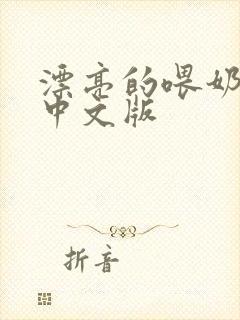 漂亮的喂奶
中文版
折音